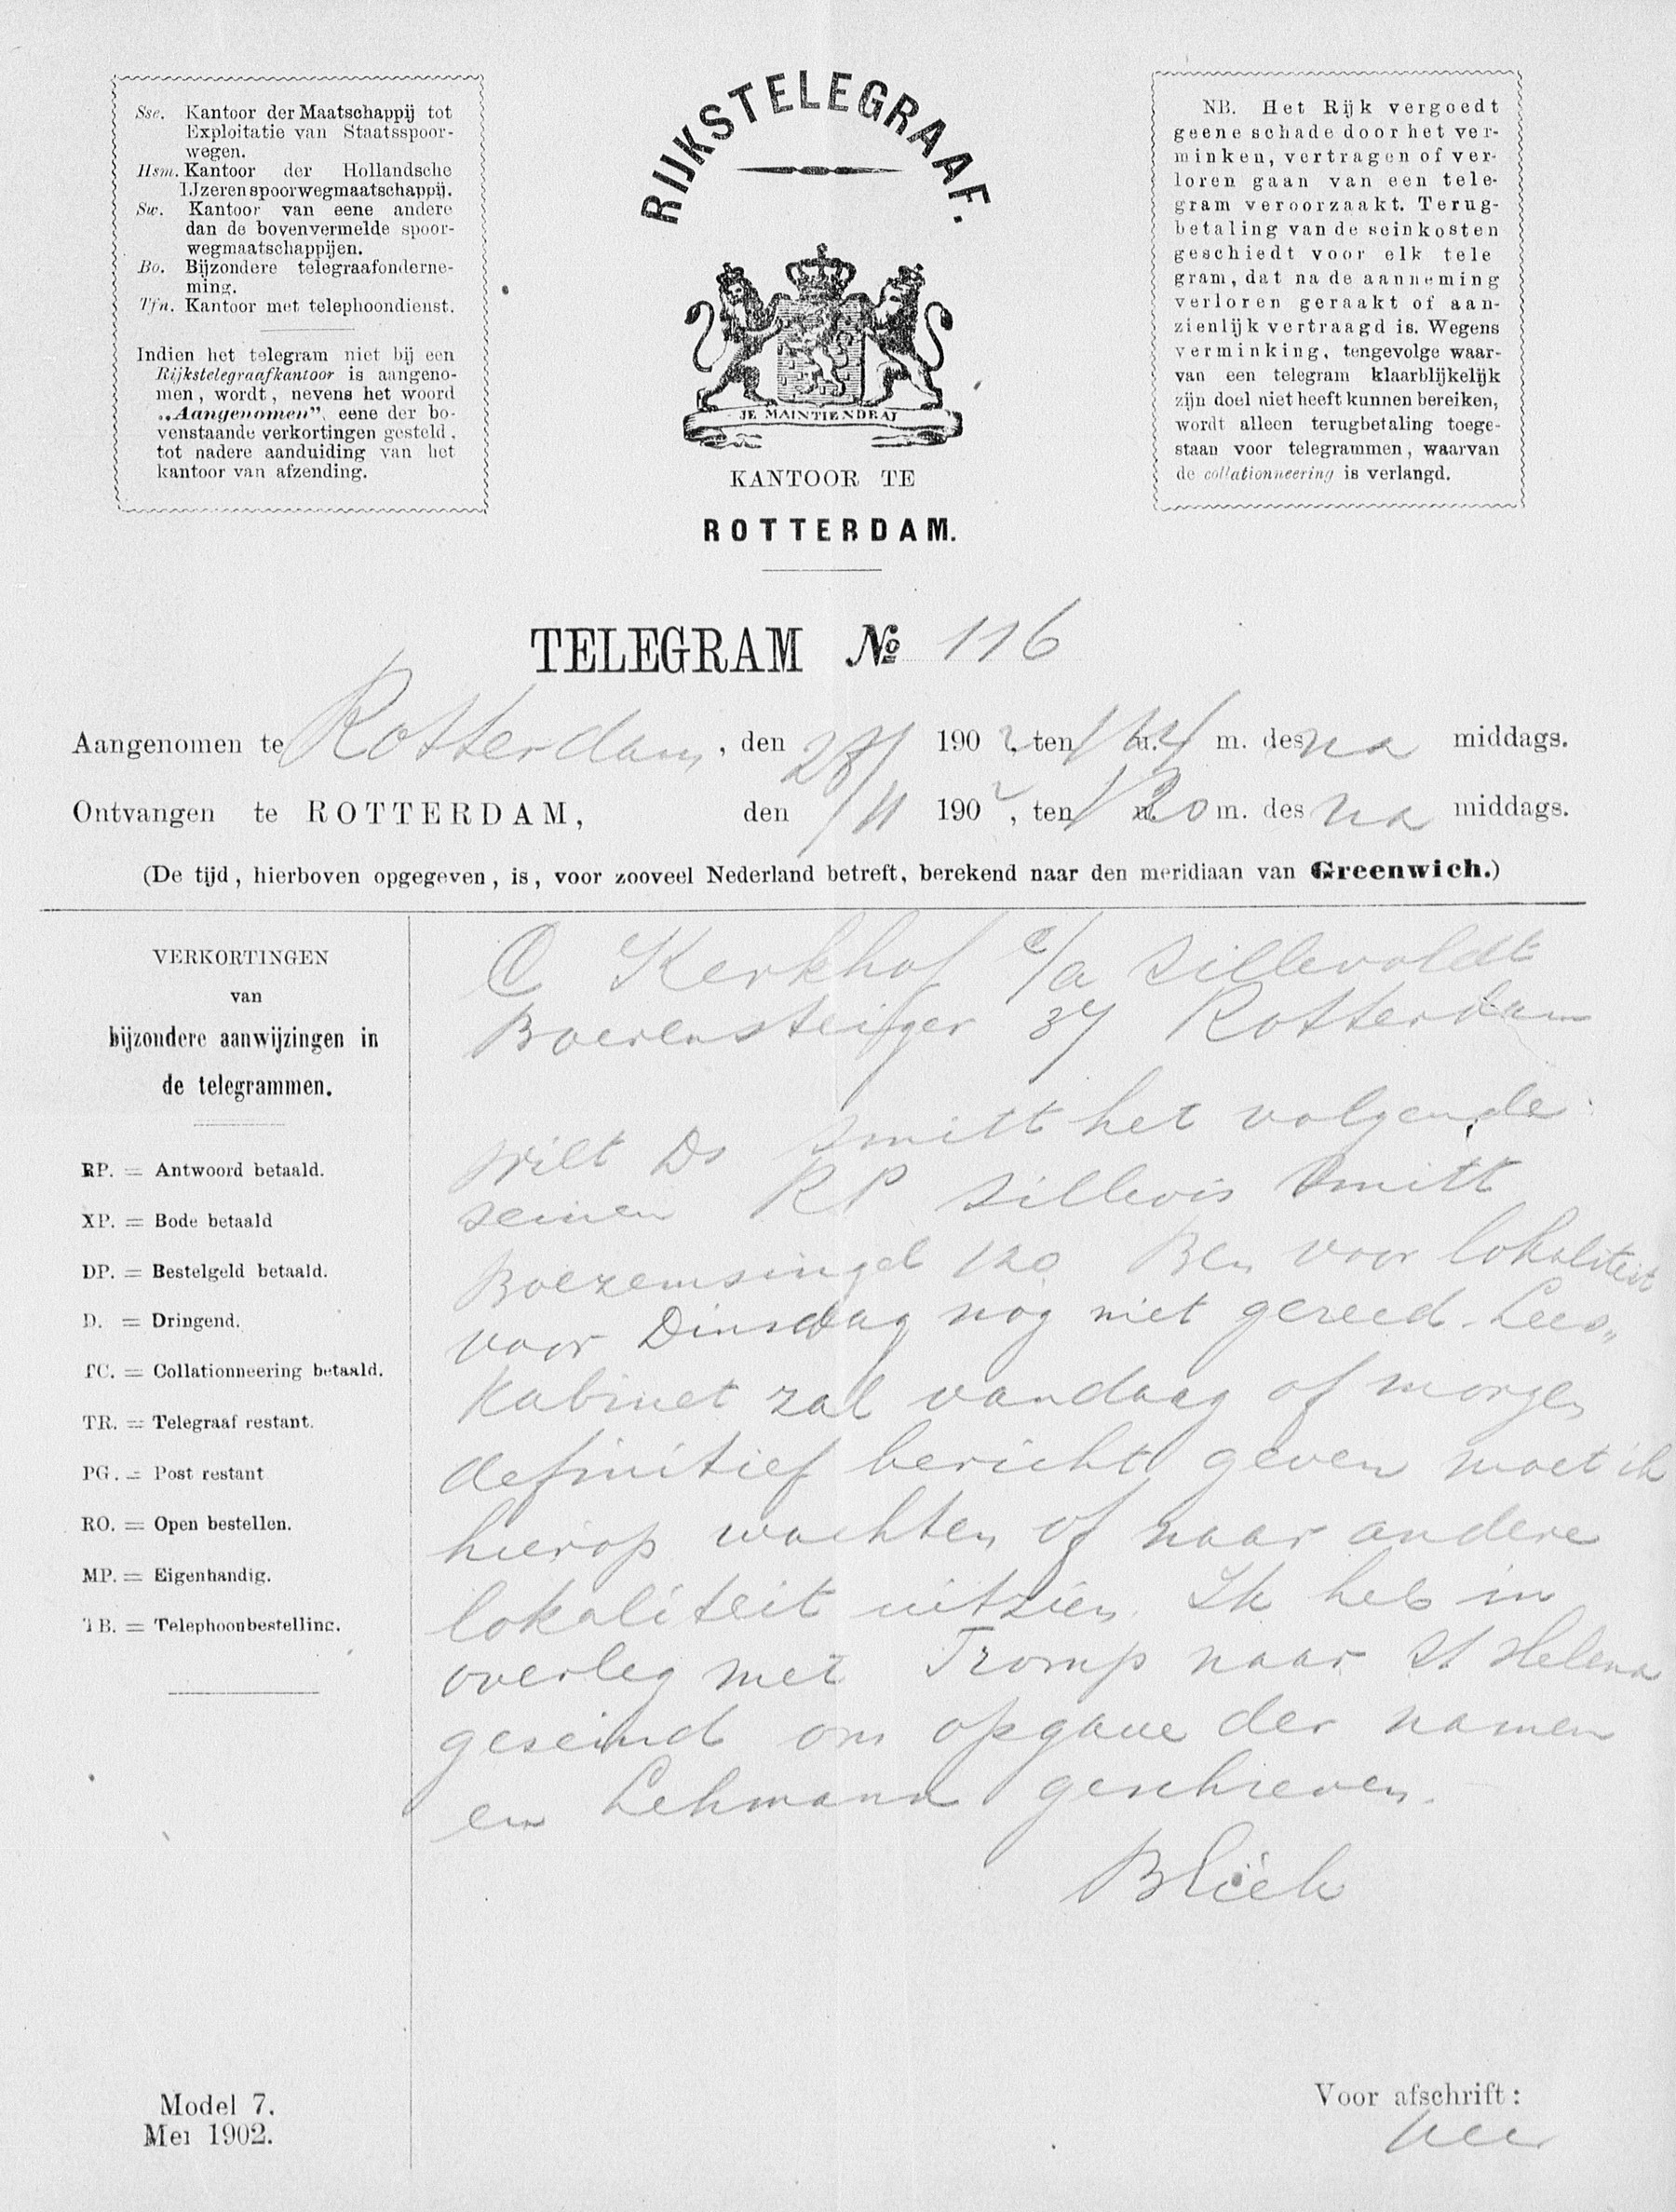 Sse. Kantoor der Maatschappij tot
Exploitatie van Staatsspoor-
wegen.
Hsm. Kantoor der Hollandsche
IJzerenspoorwegmaatschappij.
Sw. Kantoor van eene andere
dan de bovenvermelde spoor-
wegmaatschappijen.
Bo. Bijzondere telegraafonderne-
ming.
Tfn. Kantoor met telephoondienst.
Indien het telegram niet bij een
Rijkstelegraafkantoor is aangeno-
men, wordt, nevens het woord
„Aangenomen”, eene der bo-
venstaande verkortingen gesteld,
tot nadere aanduiding van het
kantoor van afzending.
RIJKSTELEGRAAF.
JE MAINTIENDRAI
KANTOOR TE
ROTTERDAM.
NB. Het Rijk vergoedt
geene schade door het ver-
minken, vertragen of ver-
loren gaan van een tele-
gram veroorzaakt. Terug-
betaling van de seinkosten
geschiedt voor elk tele
gram, dat na de aanneming
verloren geraakt of aan-
zienlijk vertraagd is. Wegens
verminking, tengevolge waar-
van een telegram klaarblijkelijk
zijn doel niet heeft kunnen bereiken,
wordt alleen terugbetaling toege-
staan voor telegrammen, waarvan
de collationneering is verlangd.
TELEGRAM No 116
Aangenomen te Rotterdam, den 28/ 1902, ten 1 u. 14 m. des na middags.
Ontvangen te ROTTERDAM, den /11 1902, ten 1 u. 20 m. des na middags.
(De tijd, hierboven opgegeven, is, voor zooveel Nederland betreft, berekend naar den meridiaan van Greenwich.)
VERKORTINGEN
van
bijzondere aanwijzingen in
de telegrammen.
RP. = Antwoord betaald.
XP. = Bode betaald
DP. = Bestelgeld betaald.
D. = Dringend.
TC. = Collationneering betaald.
TR. = Telegraaf restant.
PG. = Post restant
RO. = Open bestellen.
MP. = Eigenhandig.
TB. = Telephoonbestelling.
C Kerkhof c/a Sillevoldt
Boerensteiger 37 Rotterdam
Wilt Ds Smitt het volgende
seinen RP Sillevis Smitt
Boezemsingel 120 Ben voor lokaliteit
voor Dinsdag nog niet gereed. Lees„
Kabinet zal vandaag of morgen
definitief bericht geven moet ik
hierop wachten of naar andere
lokaliteit uitzien. Ik heb in
overleg met Tromp naar St Helena
geseind om opgave der namen
en Lehmann geschreven.
Bliek
Model 7.
Mei 1902.
Voor afschrift: